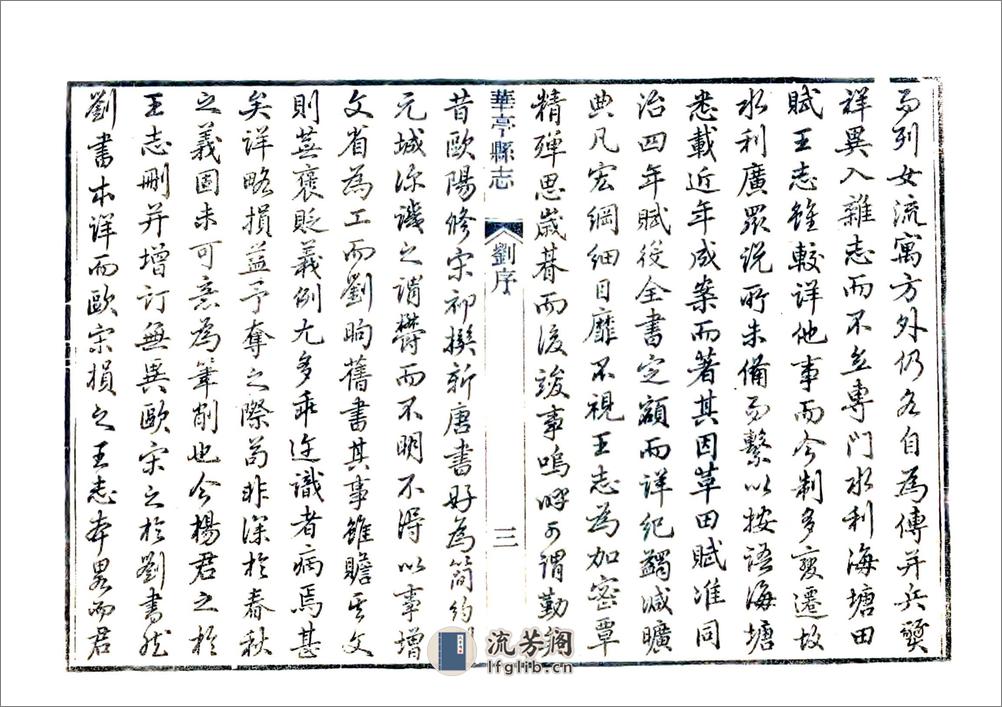 而列女流寓方外仍各自為傳并兵燹
祥異入雜志而不立專門水利海塘田
賦王志雖較詳他事而今制多變遷故
水利廣眾說所未備而繫以按語海塘
悉載近年成案而著其因革田賦准同
治四年賦役全書定額而詳紀蠲減曠
典凡宏綱細目靡不視王志為加密覃
精殫思歲暮而後竣事嗚呼可謂勤
華亭縣志 劉序 三
昔歐陽修宋祁撰新唐書好為簡約
元城深譏之謂鬱而不明不得以事增
文省為工而劉昫舊書其事雖贍其文
則蕪褒貶義例尤多乖迕識者病焉甚
矣詳略損益予奪之際苟非深於春秋
之義固未可意為筆削也今楊君之於
王志刪并增訂無異歐宋之於劉書然
劉書本詳而歐宋損之王志本畧而君
流芳阁
lfglib.cn